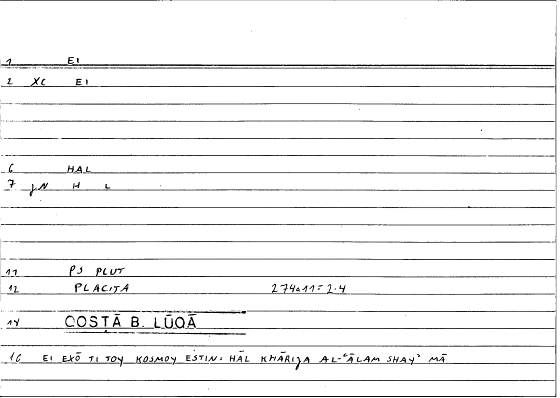 1 EI
2 XC EI
6 HAL
7 JN H L
11 PS PLUT
12 PLACITA 274a11 = 2.4
14 QOSṬĀ B. LŪQĀ
16 EI EXŌ TI TOY KOSMOY ESTIN: HĀL KHĀRIJA AL-ʿĀLAM SHAYʾ MĀ